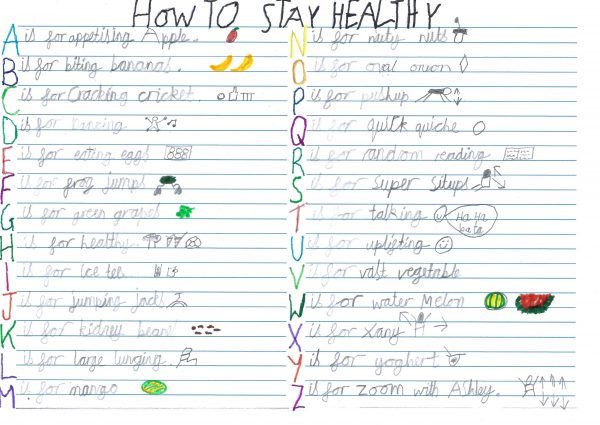 HOW TO STAY HEALTHY
A is for appetising Apple.
B is for biting bananas.
C is for Cracking cricket.
D is for
E is for eating eggs
F is for frog jumps
G is for green grapes
H is for healthy.
I is for ice tea.
J is for jumping jacks
K is for kidney beans
L is for large lunging.
M is for mango
N is for nuty nuts
O is for oval onion
P is for pushup
Q is for quick quiche
R is for random reading
S is for super situps
T is for talking Ha Ha
U is for uplifting
V is for vast vegetable
W is for water Melon
X is for
Y is for yoghert
Z is for zoom with Ashley.